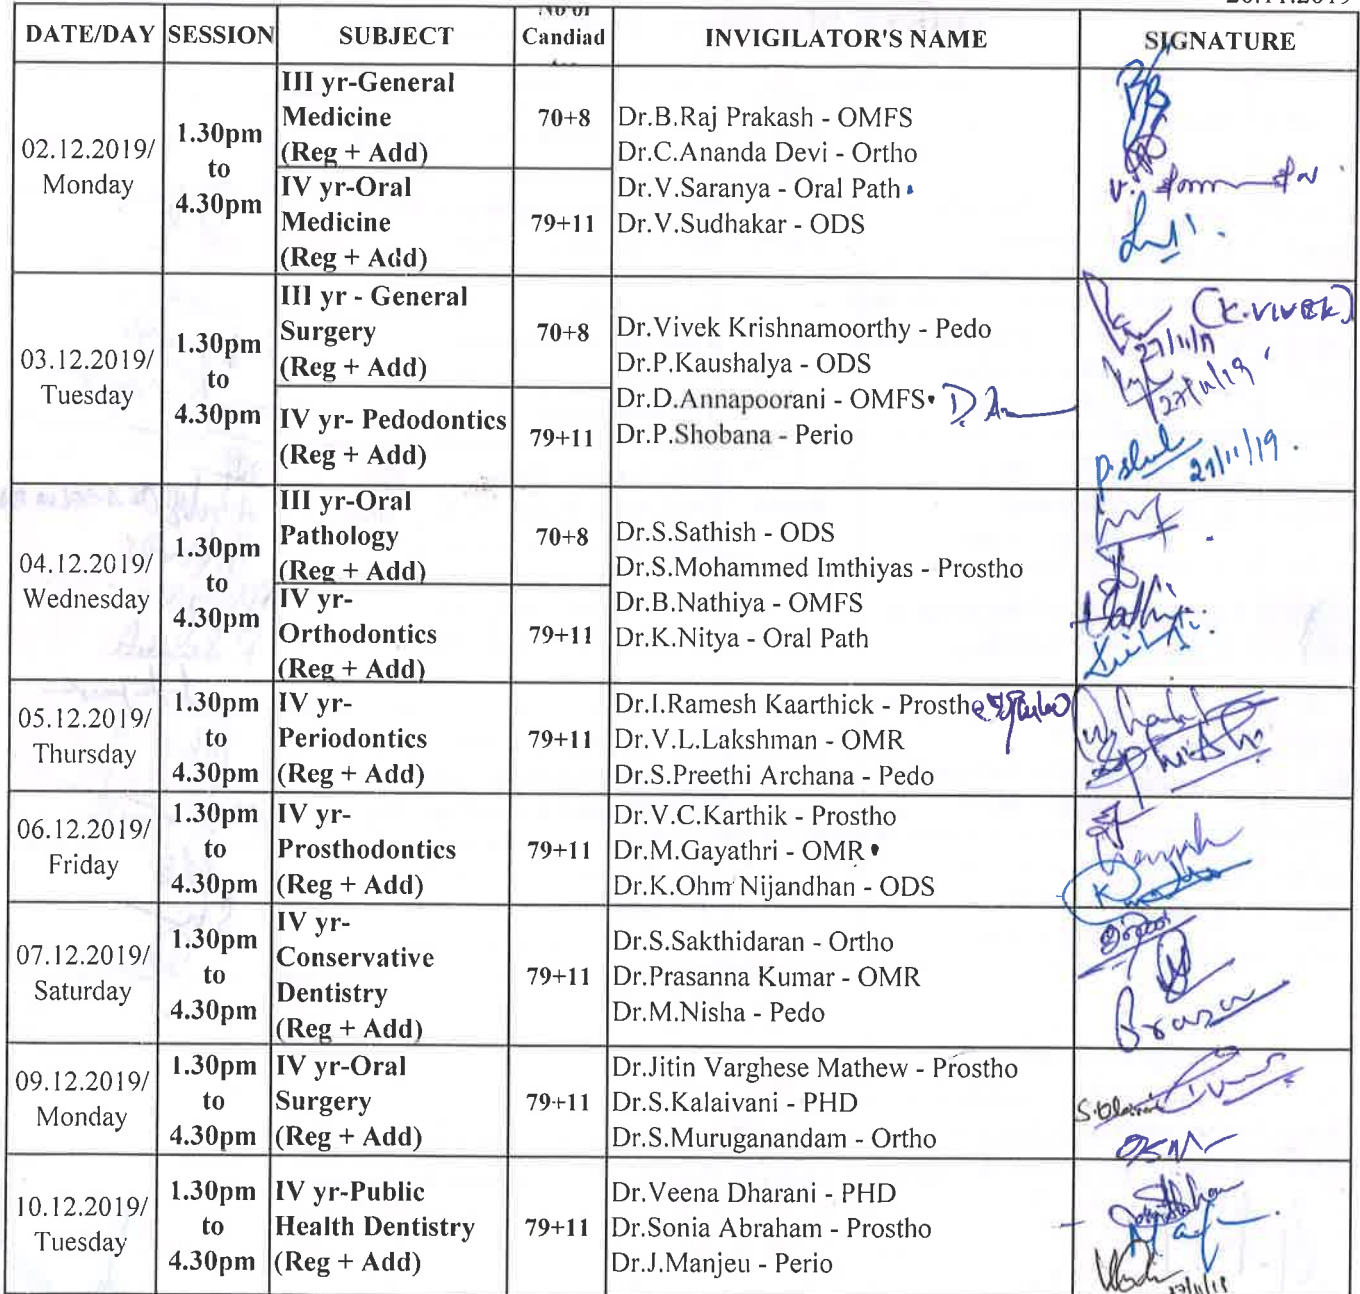 DATE/DAY SESSION SUBJECT No of Candiad INVIGILATOR'S NAME SIGNATURE
02.12.2019/
Monday
1.30pm
to
4.30pm
III yr-General
Medicine
(Reg + Add)
70+8
IV yr-Oral
Medicine
(Reg + Add)
79+11
Dr.B.Raj Prakash - OMFS
Dr.C.Ananda Devi - Ortho
Dr.V.Saranya - Oral Path
Dr.V.Sudhakar - ODS
03.12.2019/
Tuesday
1.30pm
to
4.30pm
III yr - General
Surgery
(Reg + Add)
70+8
IV yr- Pedodontics
(Reg + Add)
79+11
Dr.Vivek Krishnamoorthy - Pedo
Dr.P.Kaushalya - ODS
Dr.D.Annapoorani - OMFS
Dr.P.Shobana - Perio
(K.VIVEK)
27/11/19
27/11/19
27/11/19
04.12.2019/
Wednesday
1.30pm
to
4.30pm
III yr-Oral
Pathology
(Reg + Add)
70+8
IV yr-
Orthodontics
(Reg + Add)
79+11
Dr.S.Sathish - ODS
Dr.S.Mohammed Imthiyas - Prostho
Dr.B.Nathiya - OMFS
Dr.K.Nitya - Oral Path
05.12.2019/
Thursday
1.30pm
to
4.30pm
IV yr-
Periodontics
(Reg + Add)
79+11
Dr.I.Ramesh Kaarthick - Prostho
Dr.V.L.Lakshman - OMR
Dr.S.Preethi Archana - Pedo
06.12.2019/
Friday
1.30pm
to
4.30pm
IV yr-
Prosthodontics
(Reg + Add)
79+11
Dr.V.C.Karthik - Prostho
Dr.M.Gayathri - OMR
Dr.K.Ohm Nijandhan - ODS
07.12.2019/
Saturday
1.30pm
to
4.30pm
IV yr-
Conservative
Dentistry
(Reg + Add)
79+11
Dr.S.Sakthidaran - Ortho
Dr.Prasanna Kumar - OMR
Dr.M.Nisha - Pedo
09.12.2019/
Monday
1.30pm
to
4.30pm
IV yr-Oral
Surgery
(Reg + Add)
79+11
Dr.Jitin Varghese Mathew - Prostho
Dr.S.Kalaivani - PHD
Dr.S.Muruganandam - Ortho
10.12.2019/
Tuesday
1.30pm
to
4.30pm
IV yr-Public
Health Dentistry
(Reg + Add)
79+11
Dr.Veena Dharani - PHD
Dr.Sonia Abraham - Prostho
Dr.J.Manjeu - Perio